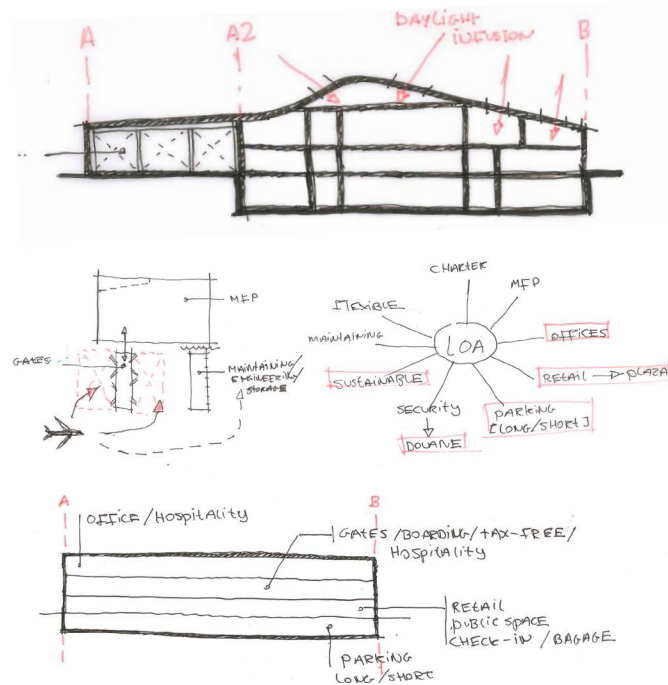 A
A2
DAYLIGHT
INFUSION
B
MFP
GATES
MAINTAINING/
ENGINEERING/
STORAGE
CHARTER
MFP
FLEXIBLE
MAINTAINING
LOA
OFFICES
SUSTAINABLE
RETAIL → PLAZA
SECURITY
PARKING
[LONG/SHORT]
DOUANE
A
B
OFFICE/HOSPITALITY
GATES/BOARDING/TAX-FREE/
HOSPITALITY
RETAIL
PUBLIC SPACE
CHECK-IN/BAGAGE
PARKING
LONG/SHORT